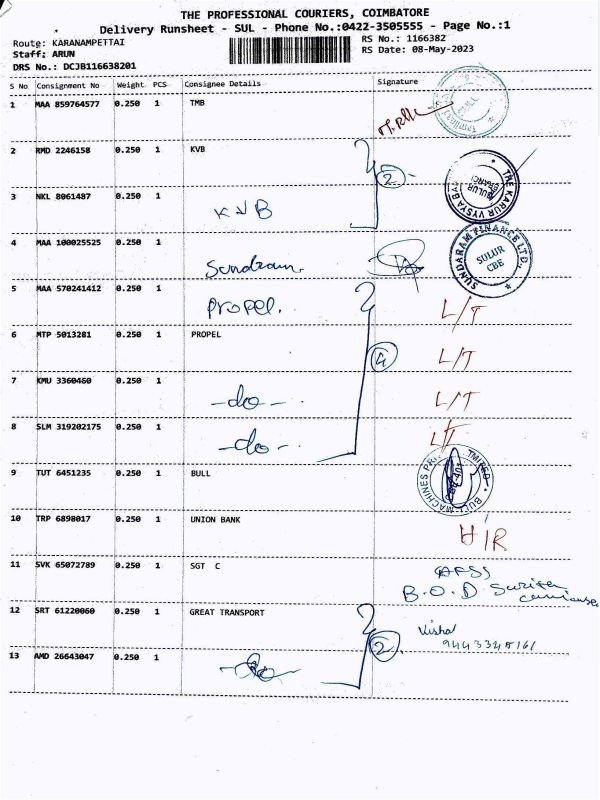 THE PROFESSIONAL COURIERS, COIMBATORE
Delivery Runsheet - SUL - Phone No.:0422-3505555 - Page No.:1
Route: KARANAMPETTAI
RS No.: 1166382
Staff: ARUN
RS Date: 08-May-2023
DRS No.: DCJB116638201
S No Consignment No Weight PCS Consignee Details Signature
1 MAA 859764577 0.250 1 TMB
2 RMD 2246158 0.250 1 KVB
2
THE KARUR VYSYA BA
SULUR
BRANCH
3 NKL 8061487 0.250 1
KVB
4 MAA 100025525 0.250 1
Sundram
SUNDARAM FINANCE LTD.
SULUR
CBE
5 MAA 570241412 0.250 1
Propel.
L/T
6 MTP 5013281 0.250 1 PROPEL
4
L/T
7 KMU 3360460 0.250 1
-do-
L/T
8 SLM 319202175 0.250 1
-do-
L/T
9 TUT 6451235 0.250 1 BULL
BULL MACHINES
10 TRP 6898017 0.250 1 UNION BANK
H/R
11 SVK 65072789 0.250 1 SGT C
B.O.D
12 SRT 61220060 0.250 1 GREAT TRANSPORT
2
Vishal
13 AMD 26643047 0.250 1
-do-